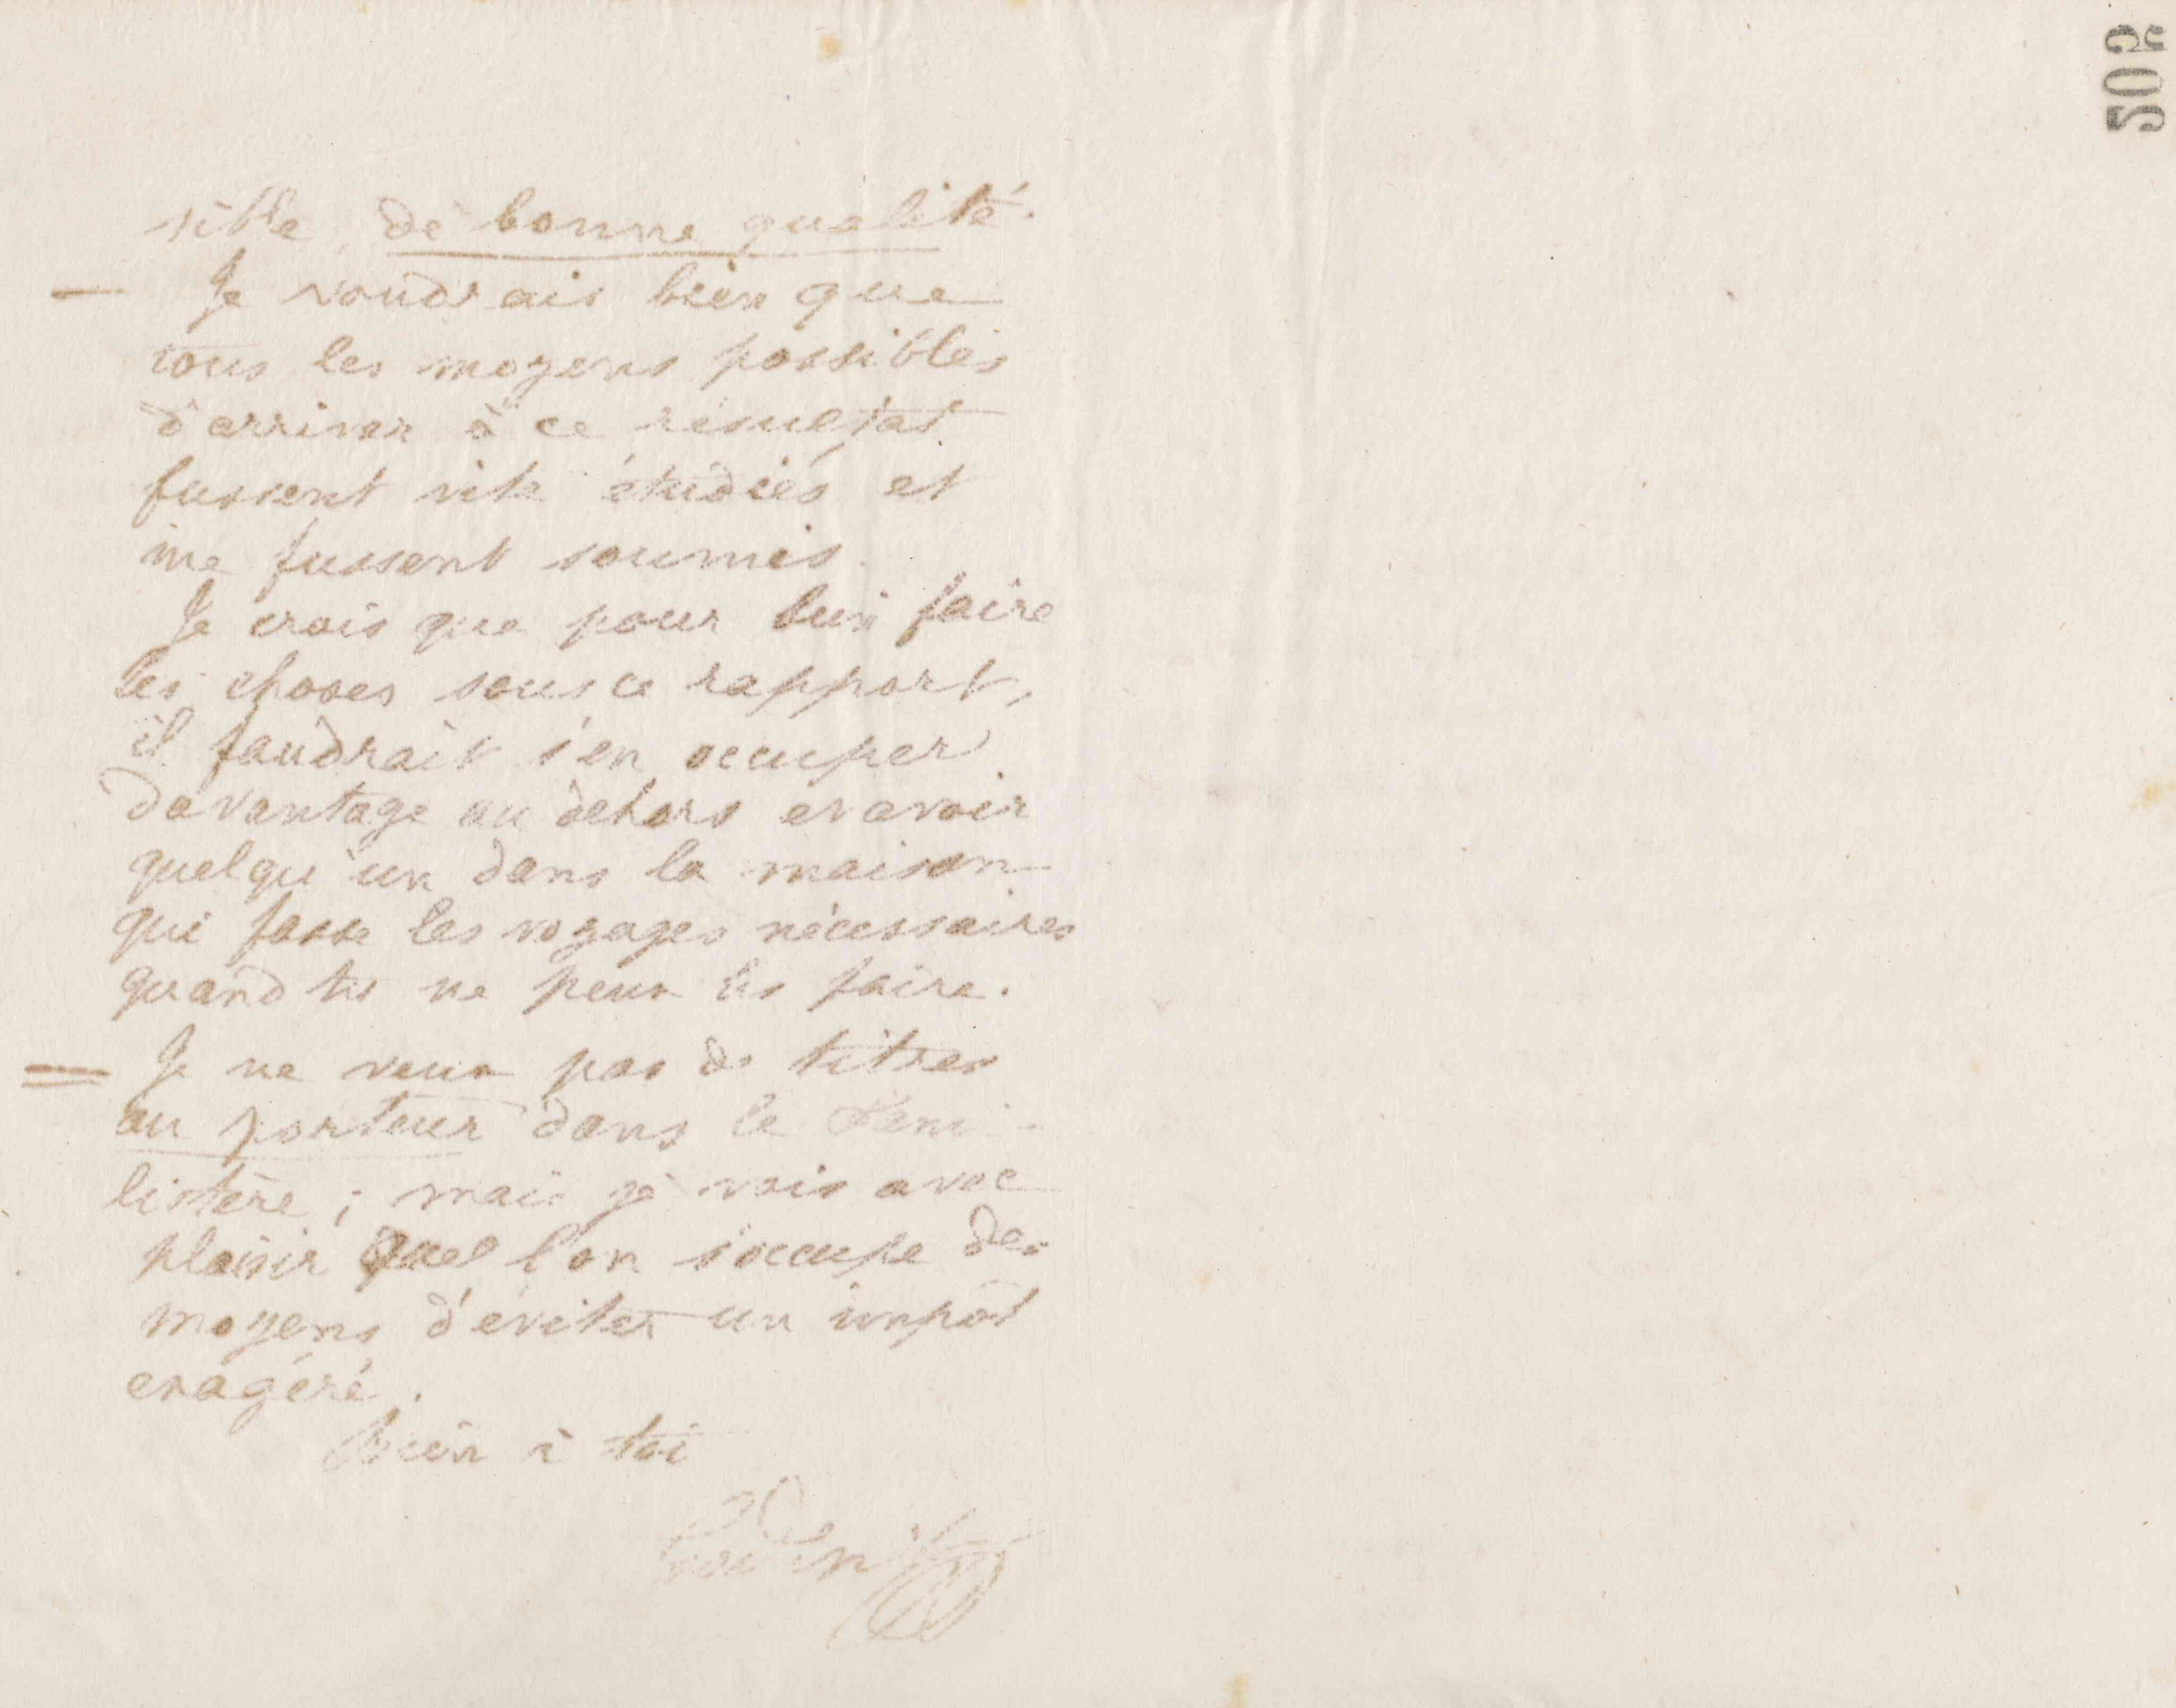 502
sible, de bonne qualité.
— Je voudrais bien que
tous les moyens possibles
d'arriver à ce résultat
fussent vite étudiés et
me fussent soumis.
Je crois que pour bien faire
les choses sous ce rapport,
il faudrait s'en occuper
davantage au dehors et avoir
quelqu'un dans la maison
qui fasse les voyages nécessaires
quand tu ne peux les faire.
= Je ne veux pas de titres
au porteur dans le Fami-
listère ; mais je vois avec
plaisir que l'on s'occupe des
moyens d'éviter un impôt
exagéré.
Bien à toi
Godin